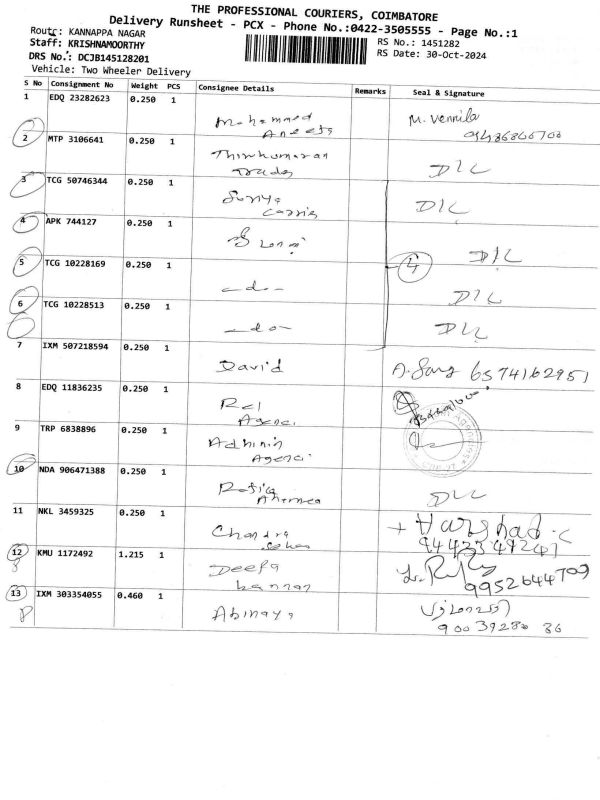 THE PROFESSIONAL COURIERS, COIMBATORE
Delivery Runsheet - PCX - Phone No.:0422-3505555 - Page No.:1
Route: KANNAPPA NAGAR
Staff: KRISHNAMOORTHY
RS No.: 1451282
DRS No.: DCJB145128201
RS Date: 30-Oct-2024
Vehicle: Two Wheeler Delivery
S No Consignment No Weight PCS Consignee Details Remarks Seal & Signature
1 EDQ 23282623 0.250 1
Mohammed M. Vennila
2 MTP 3106641 0.250 1
Thirukumaran
Trades DLC
3 TCG 50746344 0.250 1
Surya DLC
4 APK 744127 0.250 1
DLC
4
5 TCG 10228169 0.250 1
-do- DLC
6 TCG 10228513 0.250 1
-do- DLC
7 IXM 507218594 0.250 1
David 6574162951
8 EDQ 11836235 0.250 1
Agenci
9 TRP 6838896 0.250 1
Agenci
10 NDA 906471388 0.250 1
DLC
11 NKL 3459325 0.250 1
Chandra Harshad.c
12 KMU 1172492 1.215 1
Deepa
Kannan 9952644709
13 IXM 303354055 0.460 1
Abinaya